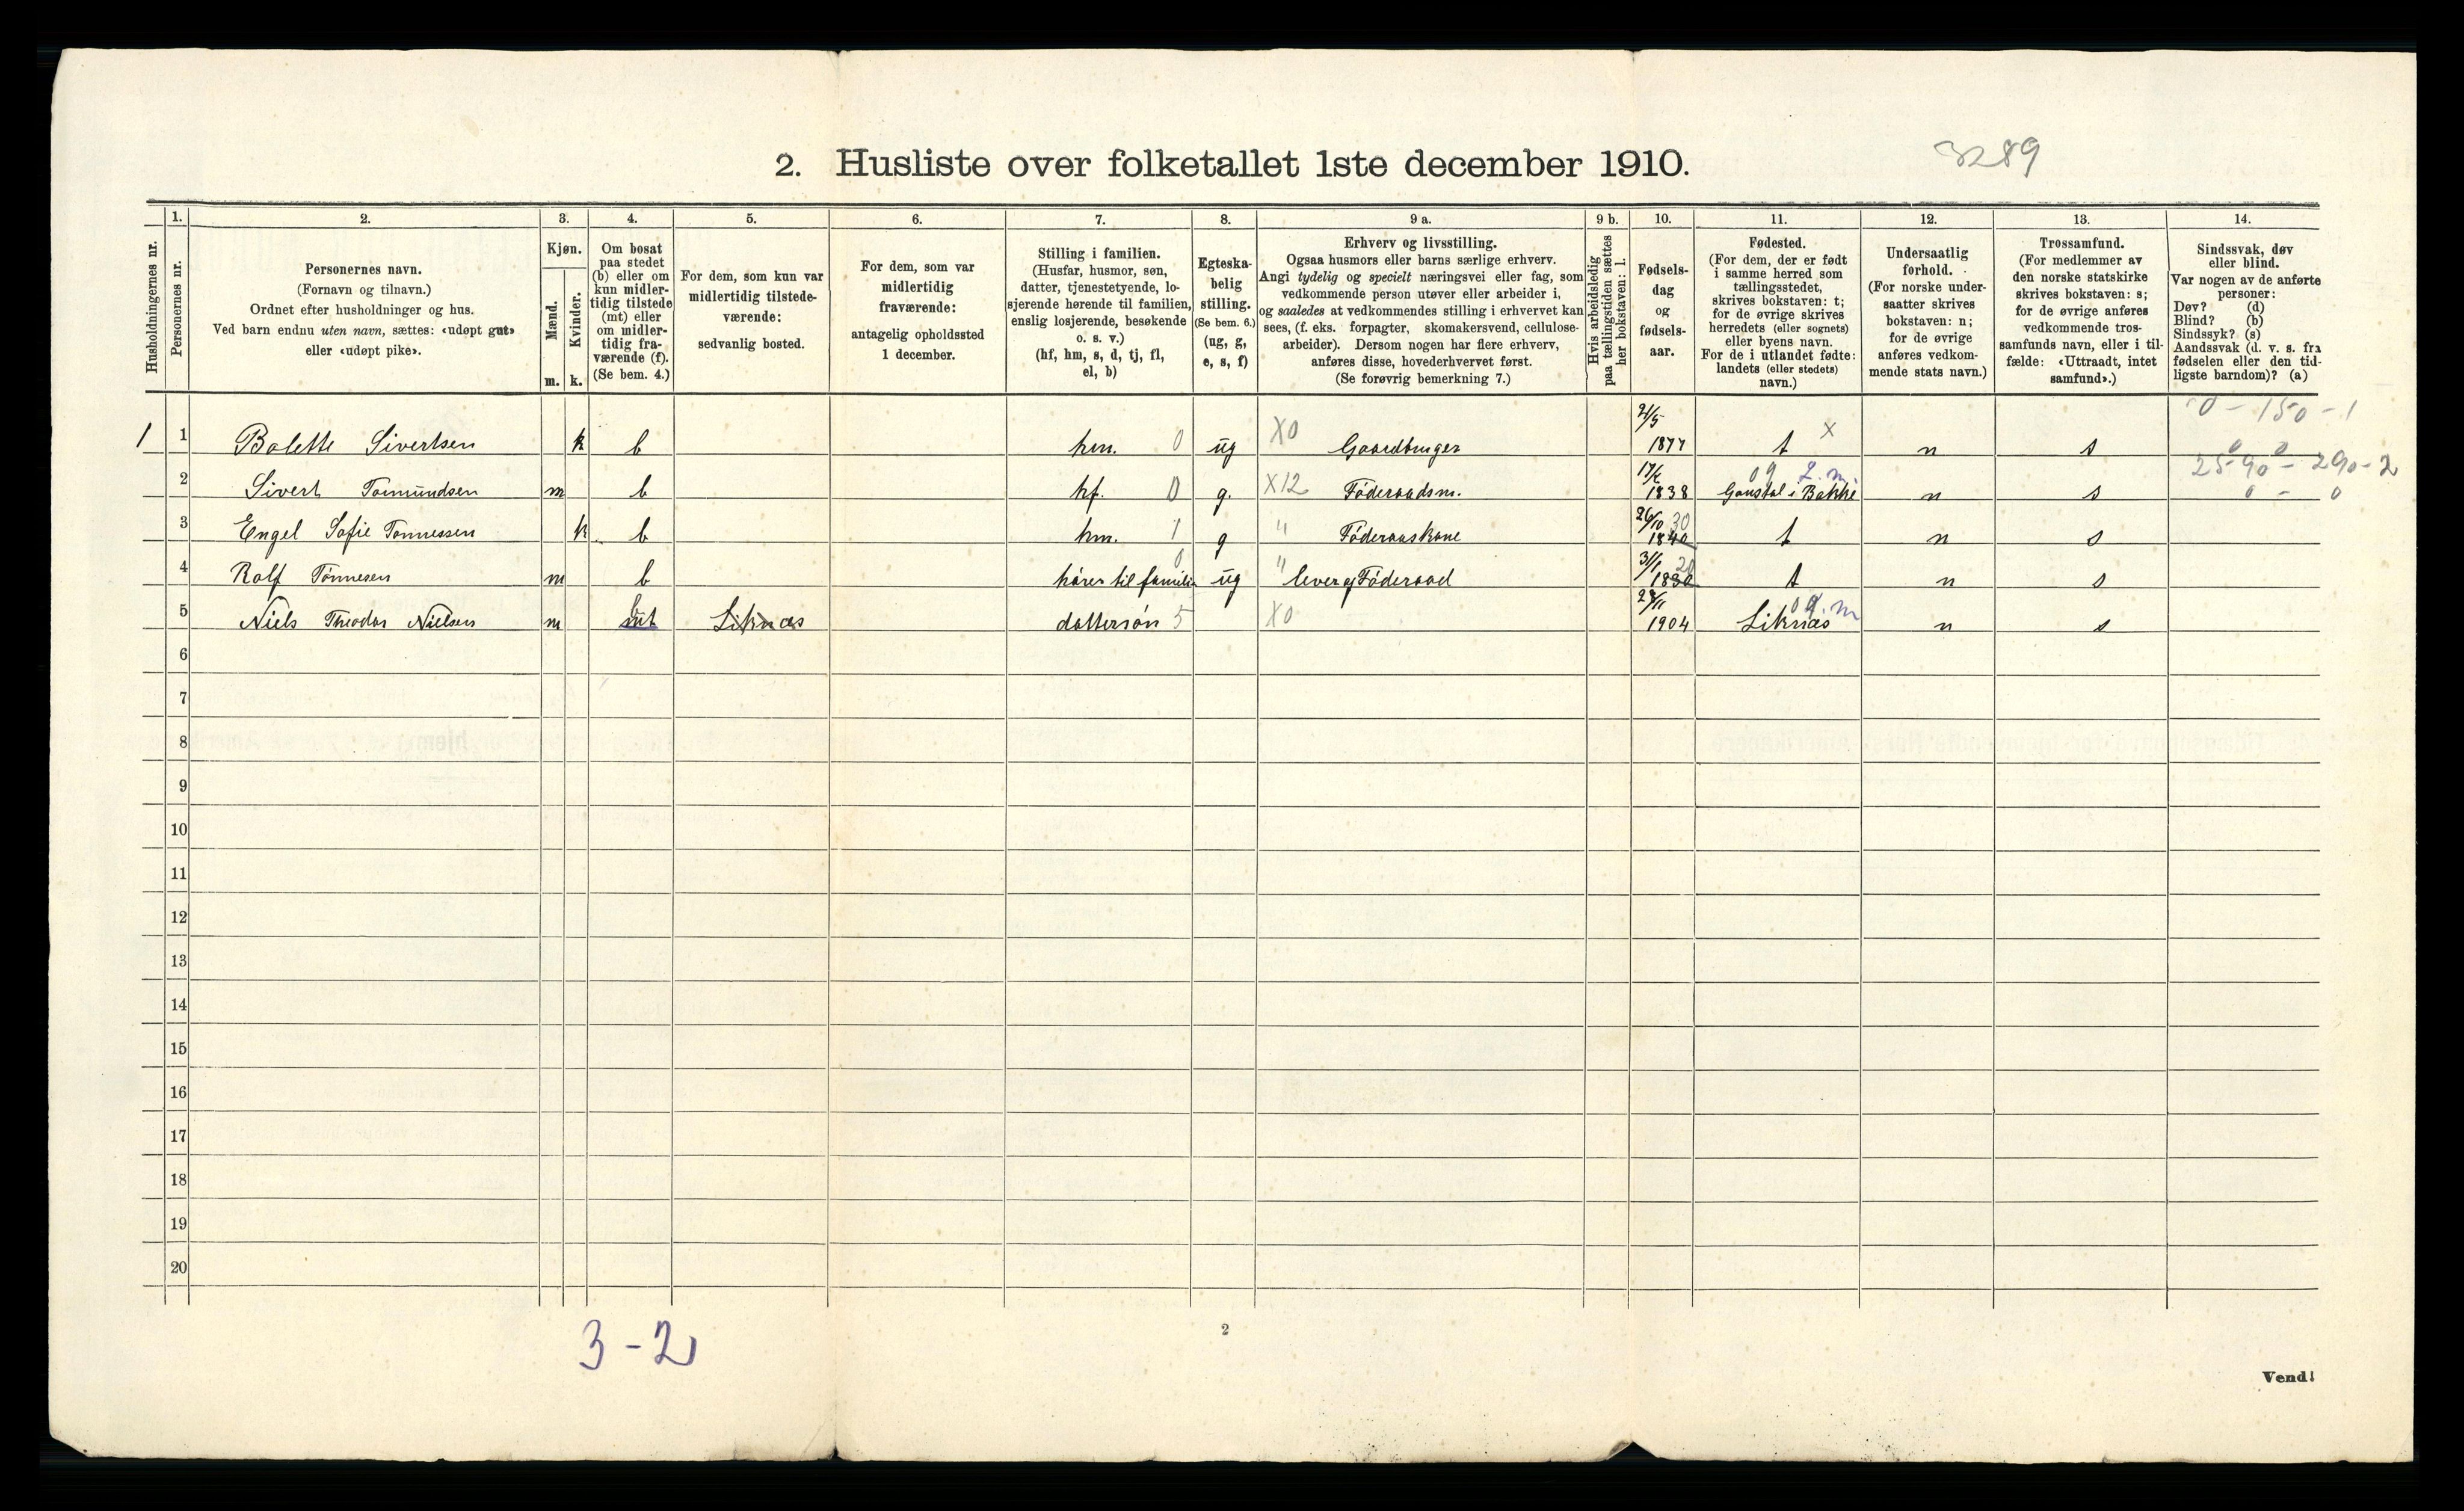 2. Husliste over folketallet 1ste december 1910.
3289
Husholdningernes nr.
1.
Personernes nr.
2.
Personernes navn.
(Fornavn og tilnavn.)
Ordnet efter husholdninger og hus.
Ved barn endnu uten navn, sættes: «udøpt gut»
eller «udøpt pike».
3.
Kjøn.
Mænd.
Kvinder.
m. k.
4.
Om bosat
paa stedet
(b) eller om
kun midler-
tidig tilstede
(mt) eller
om midler-
tidig fra-
værende (f).
(Se bem. 4.)
5.
For dem, som kun var
midlertidig tilstede-
værende:
sedvanlig bosted.
6.
For dem, som var
midlertidig
fraværende:
antagelig opholdssted
1 december.
7.
Stilling i familien.
(Husfar, husmor, søn,
datter, tjenestetyende, lo-
sjerende hørende til familien,
enslig losjerende, besøkende
o. s. v.)
(hf, hm, s, d, tj, fl,
el, b)
8.
Egteska-
belig
stilling.
(Se bem. 6.)
(ug, g,
e, s, f)
9 a.
Erhverv og livsstilling.
Ogsaa husmors eller barns særlige erhverv.
Angi tydelig og specielt næringsvei eller fag, som
vedkommende person utøver eller arbeider i,
og saaledes at vedkommendes stilling i erhvervet kan
sees, (f. eks. forpagter, skomakersvend, cellulose-
arbeider). Dersom nogen har flere erhverv,
anføres disse, hovederhvervet først.
(Se forøvrig bemerkning 7.)
9 b.
Hvis arbeidsledig
paa tællingstiden sættes
her bokstaven: l.
10.
Fødsels-
dag
og
fødsels-
aar.
11.
Fødested.
(For dem, der er født
i samme herred som
tællingsstedet,
skrives bokstaven: t;
for de øvrige skrives
herredets (eller sognets)
eller byens navn.
For de i utlandet fødte:
landets (eller stedets)
navn.)
12.
Undersaatlig
forhold.
(For norske under-
saatter skrives
bokstaven: n;
for de øvrige
anføres vedkom-
mende stats navn.)
13.
Trossamfund.
(For medlemmer av
den norske statskirke
skrives bokstaven: s;
for de øvrige anføres
vedkommende tros-
samfunds navn, eller i til-
fælde: «Uttraadt, intet
samfund».)
14.
Sindssvak, døv
eller blind.
Var nogen av de anførte
personer:
Døv? (d)
Blind? (b)
Sindssyk? (s)
Aandssvak (d. v. s. fra
fødselen eller den tid-
ligste barndom)? (a)
0 - 150 - 1
1 1 Bolette Sivertsen k b hm. 0 ug X0 Gaardbruger 2/5 1877 t X n s
0 0
2 Sivert Tormundsen m b hf. 0 g. X12 Føderaadsm. 17/2 1838 Gaustal i Bakke 09 2. m. n s 25-90 - 290-2
0 - 0
3 Engel Sofie Tonnessen k b hm. 1 g " Føderaaskone 26/10 30 1840 t n s
4 Rolf Tønnesen m b hører til familie 0 ug " lever af Føderaad 31/1 20 1830 t n s
5 Niels Theodor Nielsen m b mt Liknæs dattersøn 5 X0 1904 Liknæs n s
6
7
8
9
10
11
12
13
14
15
16
17
18
19
20
3 - 2
2
Vend!